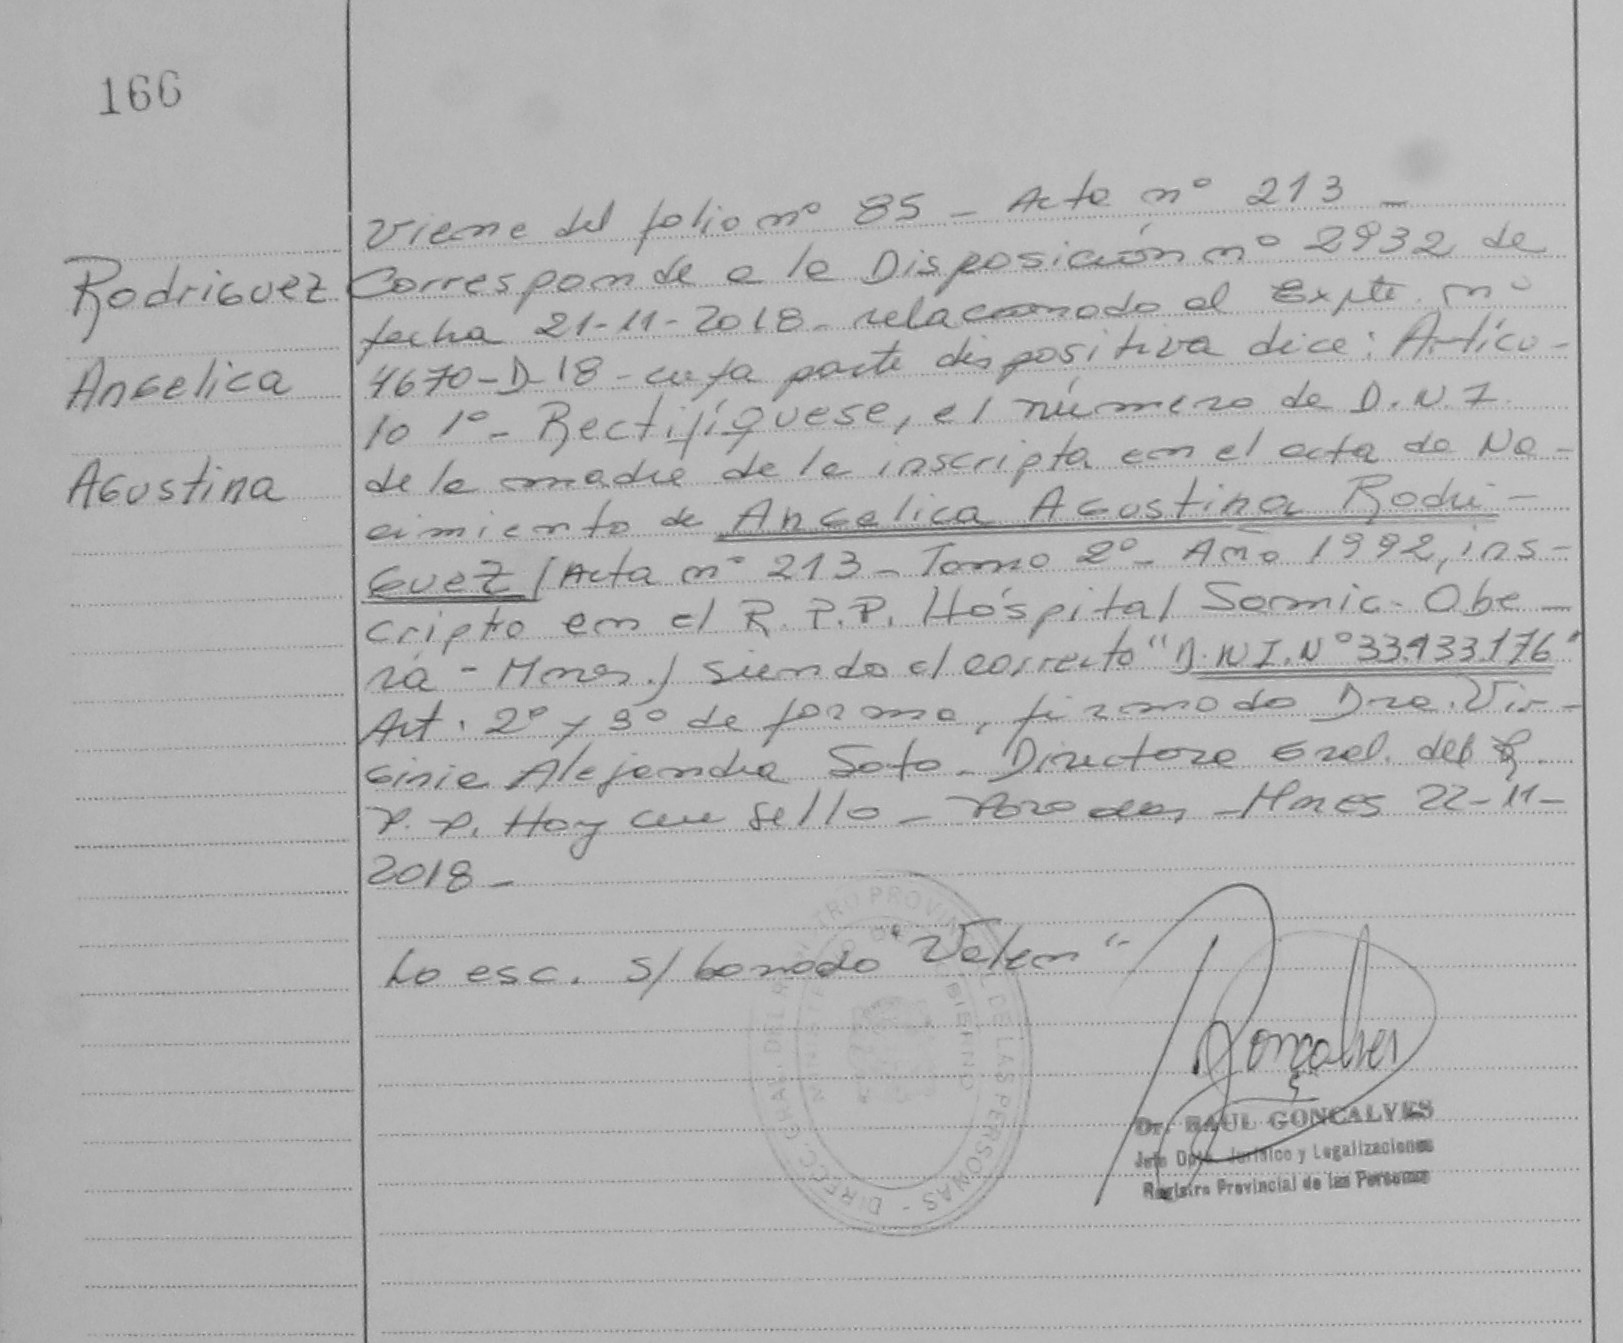 166
Rodriguez
Angelica
Agustina
Viene del folio nº 85 - Acta nº 213 -
Corresponde a la Disposición nº 2932 de
fecha 21-11-2018 - relacionado al Expte. nº
4670-D-18 - cuya parte dispositiva dice: Artícu-
lo 1º - Rectifíquese, el número de D.N.I.
de la madre de la inscripta en el acta de Na-
cimiento de Angelica Agustina Rodri-
guez / Acta nº 213 - Tomo 2º - Año 1992, ins-
cripto en el R.P.P. Hospital Samic - Obe-
rá - Mnes. / siendo el correcto "D.N.I. Nº 33.933.176"
Art. 2º y 3º de forma, firmado Dra. Vir-
ginia Alejandra Soto - Directora Gral. del R.
P.P. Hay un sello - Posadas, - Mnes 22-11-
2018 -
Lo esc. s/ borrado "Valen"
DIREC. GRAL. DEL REGISTRO PROVINCIAL DE LAS PERSONAS -
MINISTERIO DE GOBIERNO
Gonçalves
Dr. RAUL GONCALVES
Jefe Dpto. Jurídico y Legalizaciones
Registro Provincial de las Personas